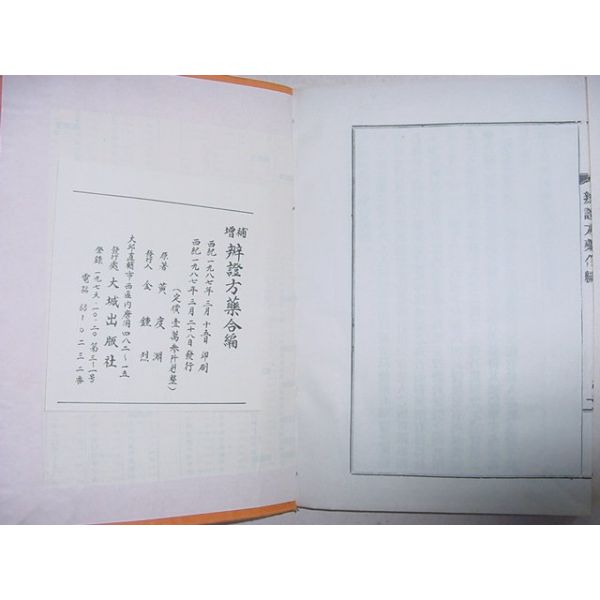 增補 辯證方藥合編
西紀一九八七年二月十五日 印刷
西紀一九八七年二月二十八日 發行
(定價 壹萬參仟원整)
原著 黃度淵
發行人 金鍾烈
大邱直轄市西區內唐洞四八二~一五
發行處 大城出版社
登錄 一九七六·一〇·二〇 第三~一號
辨證方藥合編